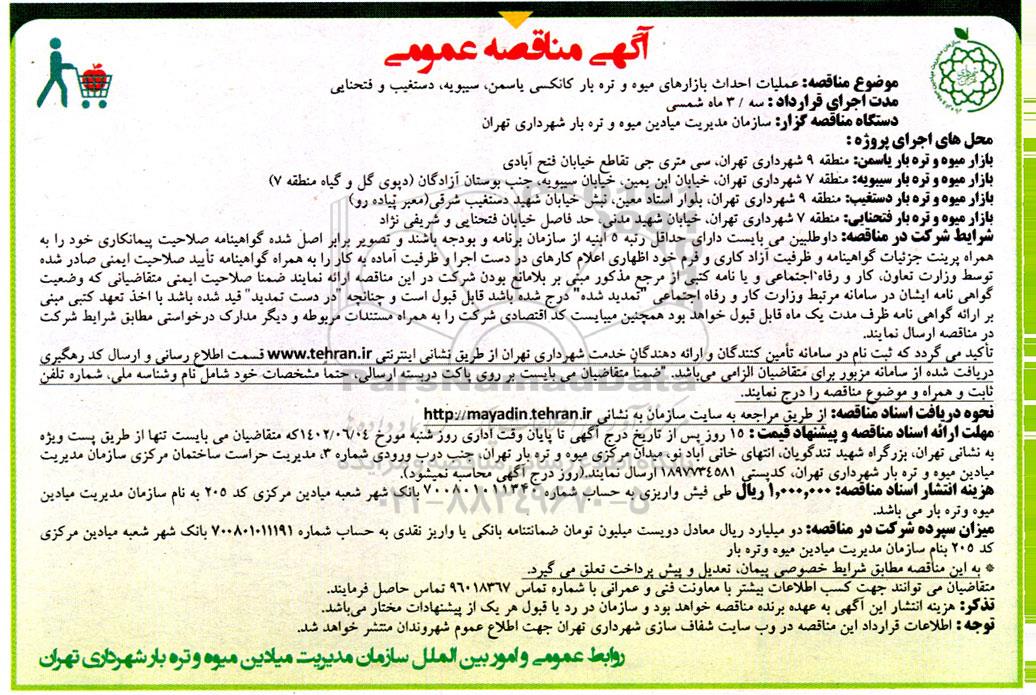 آگهی مناقصه عمومی
موضوع مناقصه: عملیات احداث بازارهای میوه و تره بار کانکسی یاسمن، سیبویه، دستغیب و فتحنایی
مدت اجرای قرارداد: سه / ۳ ماه شمسی
دستگاه مناقصه گزار: سازمان مدیریت میادین میوه و تره بار شهرداری تهران
محل های اجرای پروژه :
بازار میوه و تره بار یاسمن: منطقه ۹ شهرداری تهران، سی متری جی تقاطع خیابان فتح آبادی
بازار میوه و تره بار سیبویه: منطقه ۷ شهرداری تهران، خیابان ابن یمین، خیابان سیبویه، جنب بوستان آزادگان (دپوی گل و گیاه منطقه ۷)
بازار میوه و تره بار دستغیب: منطقه ۹ شهرداری تهران، بلوار استاد معین، نبش خیابان شهید دستغیب شرقی(معبر پیاده رو)
بازار میوه و تره بار فتحنایی: منطقه ۷ شهرداری تهران، خیابان شهید مدنی، حد فاصل خیابان فتحنایی و شریفی نژاد
شرایط شرکت در مناقصه: داوطلبین می بایست دارای حداقل رتبه ۵ ابنیه از سازمان برنامه و بودجه باشند و تصویر برابر اصل شده گواهینامه صلاحیت پیمانکاری خود را به
همراه پرینت جزئیات گواهینامه و ظرفیت آزاد کاری و فرم خود اظهاری اعلام کارهای در دست اجرا و ظرفیت آماده به کار را به همراه گواهینامه تأیید صلاحیت ایمنی صادر شده
توسط وزارت تعاون، کار و رفاه اجتماعی و یا نامه کتبی از مرجع مذکور مبنی بر بلامانع بودن شرکت در این مناقصه ارائه نمایند ضمنا صلاحیت ایمنی متقاضیانی که وضعیت
گواهی نامه ایشان در سامانه مرتبط وزارت کار و رفاه اجتماعی "تمدید شده" درج شده باشد قابل قبول است و چنانچه "در دست تمدید" قید شده باشد با اخذ تعهد کتبی مبنی
بر ارائه گواهی نامه ظرف مدت یک ماه قابل قبول خواهد بود همچنین میبایست کد اقتصادی شرکت را به همراه مستندات مربوطه و دیگر مدارک درخواستی مطابق شرایط شرکت
در مناقصه ارسال نمایند.
تأکید می گردد که ثبت نام در سامانه تأمین کنندگان و ارائه دهندگان خدمت شهرداری تهران از طریق نشانی اینترنتی www.tehran.ir قسمت اطلاع رسانی و ارسال کد رهگیری
دریافت شده از سامانه مزبور برای متقاضیان الزامی می‌باشد. "ضمنا متقاضیان می بایست بر روی پاکت دربسته ارسالی، حتما مشخصات خود شامل نام وشناسه ملی، شماره تلفن
ثابت و همراه و موضوع مناقصه را درج نمایند.
نحوه دریافت اسناد مناقصه: از طریق مراجعه به سایت سازمان به نشانی http://mayadin.tehran.ir
مهلت ارائه اسناد مناقصه و پیشنهاد قیمت : ۱۵ روز پس از تاریخ درج آگهی تا پایان وقت اداری روز شنبه مورخ ۱۴۰۲/۰۶/۰۴که متقاضیان می بایست تنها از طریق پست ویژه
به نشانی تهران، بزرگراه شهید تندگویان، انتهای خانی آباد نو، میدان مرکزی میوه و تره بار تهران، جنب درب ورودی شماره ۳، مدیریت حراست ساختمان مرکزی سازمان مدیریت
میادین میوه و تره بار شهرداری تهران، کدپستی ۱۸۹۷۷۳۴۵۸۱ ارسال نمایند.(روز درج آگهی محاسبه نمیشود).
هزینه انتشار اسناد مناقصه: ۱,۰۰۰,۰۰۰ ریال طی فیش واریزی به حساب شماره ۷۰۰۸۰۱۰۱۱۱۳۴۰ بانک شهر شعبه میادین مرکزی کد ۲۰۵ به نام سازمان مدیریت میادین
میوه وتره بار می باشد.
میزان سپرده شرکت در مناقصه: دو میلیارد ریال معادل دویست میلیون تومان ضمانتنامه بانکی یا واریز نقدی به حساب شماره ۷۰۰۸۰۱۰۱۱۱۹۱ بانک شهر شعبه میادین مرکزی
کد ۲۰۵ بنام سازمان مدیریت میادین میوه وتره بار
* به این مناقصه مطابق شرایط خصوصی پیمان، تعدیل و پیش پرداخت تعلق می گیرد.
متقاضیان می توانند جهت کسب اطلاعات بیشتر با معاونت فنی و عمرانی با شماره تماس ۹۶۰۱۸۳۶۷ تماس حاصل فرمایند.
تذکر: هزینه انتشار این آگهی به عهده برنده مناقصه خواهد بود و سازمان در رد یا قبول هر یک از پیشنهادات مختار می‌باشد.
توجه : اطلاعات قرارداد این مناقصه در وب سایت شفاف سازی شهرداری تهران جهت اطلاع عموم شهروندان منتشر خواهد شد.
روابط عمومی و امور بین الملل سازمان مدیریت میادین میوه و تره بار شهرداری تهران